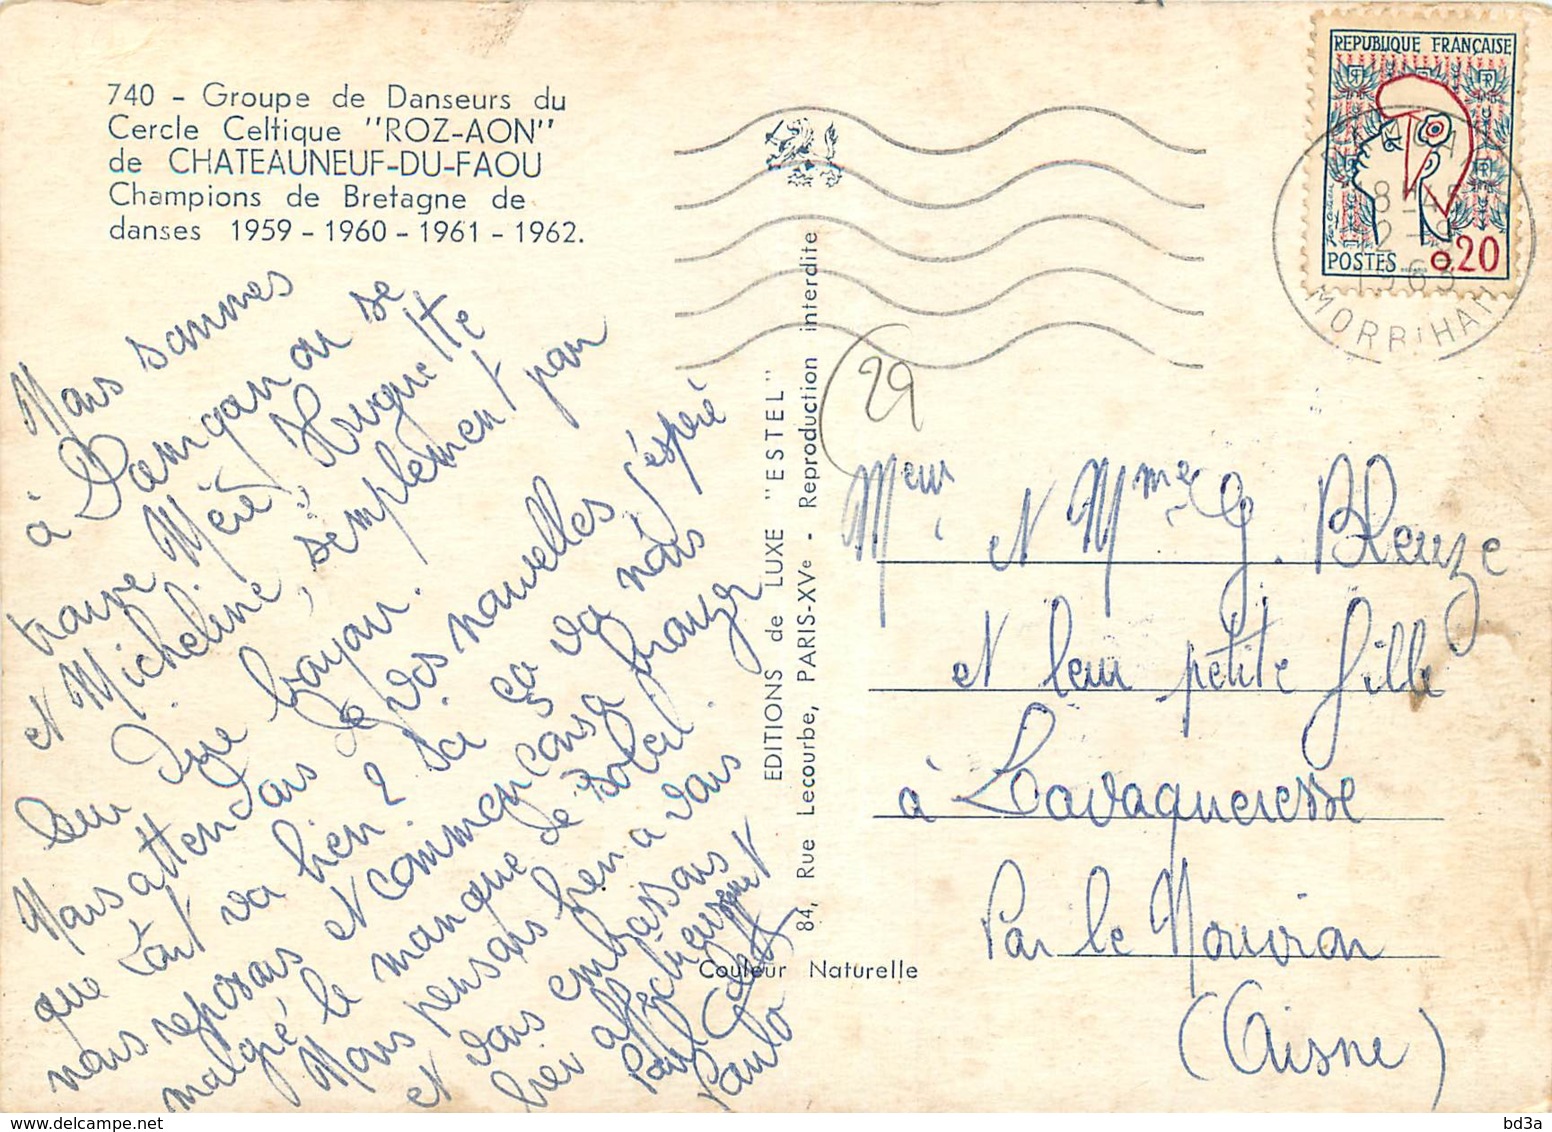 740 - Groupe de Danseurs du
Cercle Celtique "ROZ-AON"
de CHATEAUNEUF-DU-FAOU
Champions de Bretagne de
danses 1959 - 1960 - 1961 - 1962.
Nous sommes
à Damgan on se
trouve Méré, Huguette
et Micheline, semplement pour
leur dire bonjour.
Nous attendons de vos nouvelles j'espère
que tout va bien? Ici ça va nous
nous reposons et commençons a bronzer
malgré le manque de soleil.
Nous pensons bien a vous
et vous embrassons
bien affectueusement
Paul Colette
Paula
EDITIONS de LUXE "ESTEL"
84, Rue Lecourbe, PARIS-XVe - Reproduction interdite
Couleur Naturelle
REPUBLIQUE FRANÇAISE
POSTES 0,20
8H45
2-8
1963
MORBIHAN
29
Meur et Mme G. Bleuze
et leur petite fille
à Lavaqueresse
Par le Nouvion
(Aisne)
bd3a